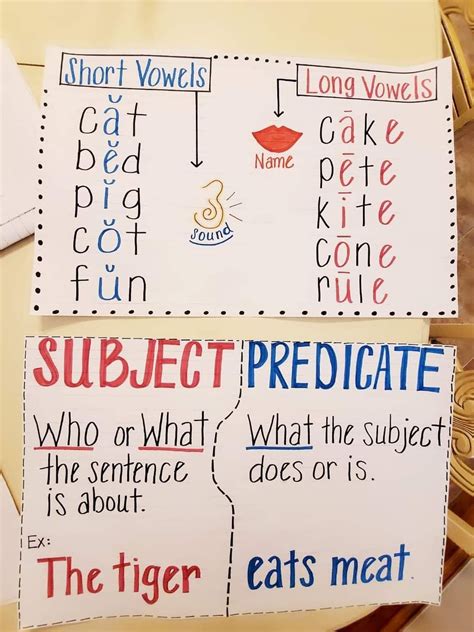 Short Vowels
căt
bĕd
pĭg
cŏt
fŭn
Sound
Long Vowels
Name
cāke
pēte
kīte
cōne
rūle
SUBJECT
Who or What
the sentence
is about.
Ex:
The tiger
PREDICATE
What the subject
does or is.
eats meat.